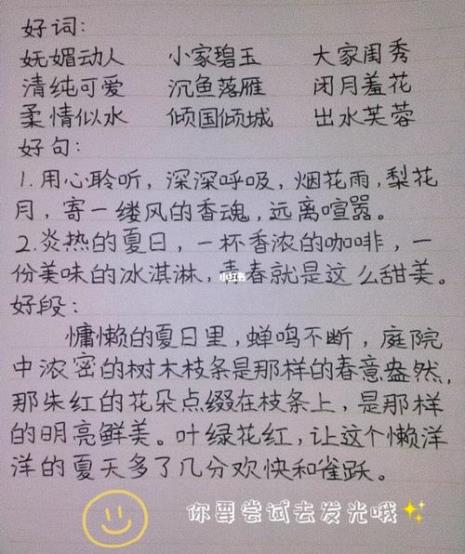 好词:
妩媚动人 小家碧玉 大家闺秀
清纯可爱 沉鱼落雁 闭月羞花
柔情似水 倾国倾城 出水芙蓉
好句:
1.用心聆听,深深呼吸,烟花雨,梨花
月,寄一缕风的香魂,远离喧嚣。
2.炎热的夏日,一杯香浓的咖啡,一
份美味的冰淇淋,青春就是这么甜美。
小红书
好段:
慵懒的夏日里,蝉鸣不断,庭院
中浓密的树木枝条是那样的春意盎然,
那朱红的花朵点缀在枝条上,是那样
的明亮鲜美。叶绿花红,让这个懒洋
洋的夏天多了几分欢快和雀跃。
你要尝试去发光哦✨